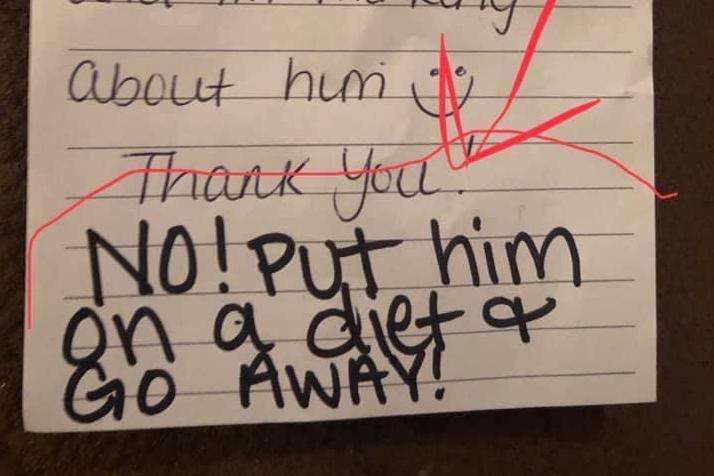 about him
Thank you!
NO! PUT him
on a diet &
GO AWAY!